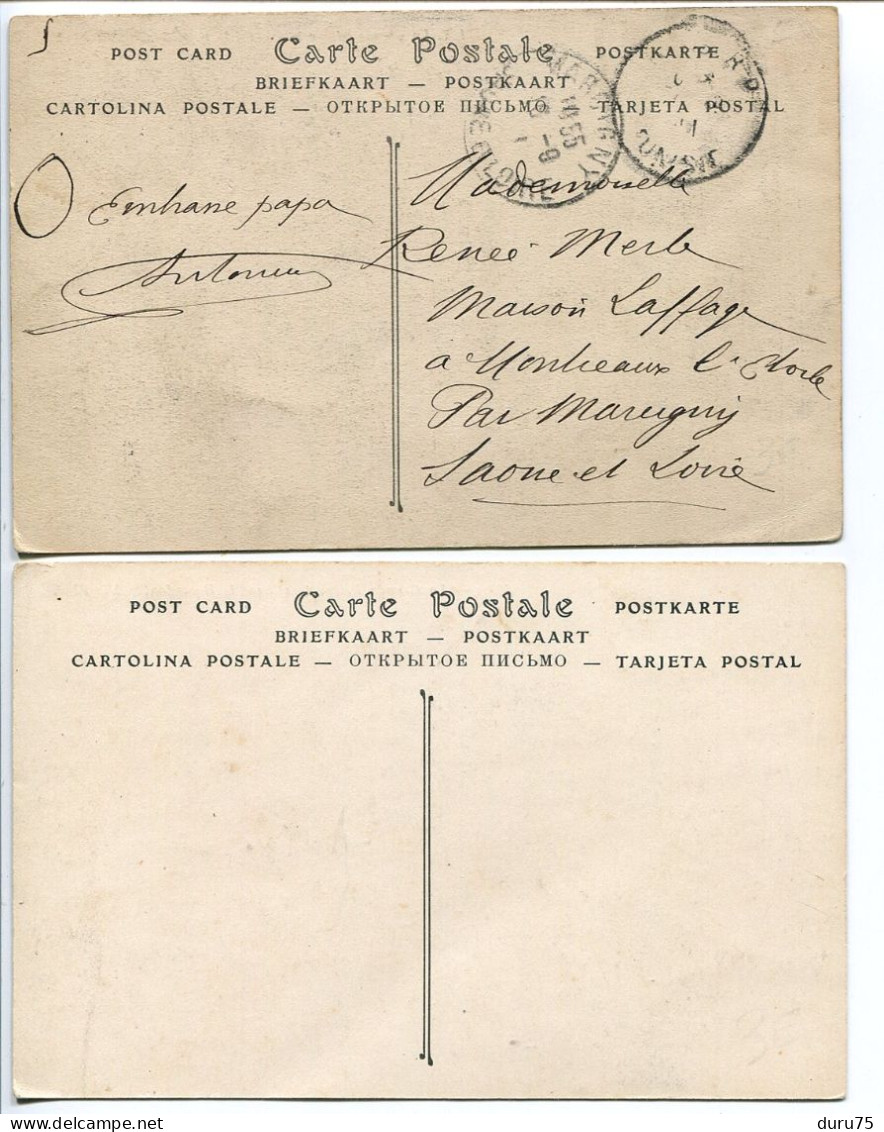 POST CARD Carte Postale POSTKARTE
BRIEFKAART — POSTKAART
CARTOLINA POSTALE — ОТКРЫТОЕ ПИСЬМО — TARJETA POSTAL
MARCIGNY
SAONE-ET-LOIRE
Mademoiselle
Embrasse papa
Renée Merle
Maison Laffage
a Montceaux l'Etoile
Par Marcigny
Saone et Loire
POST CARD Carte Postale POSTKARTE
BRIEFKAART — POSTKAART
CARTOLINA POSTALE — ОТКРЫТОЕ ПИСЬМО — TARJETA POSTAL
duru75